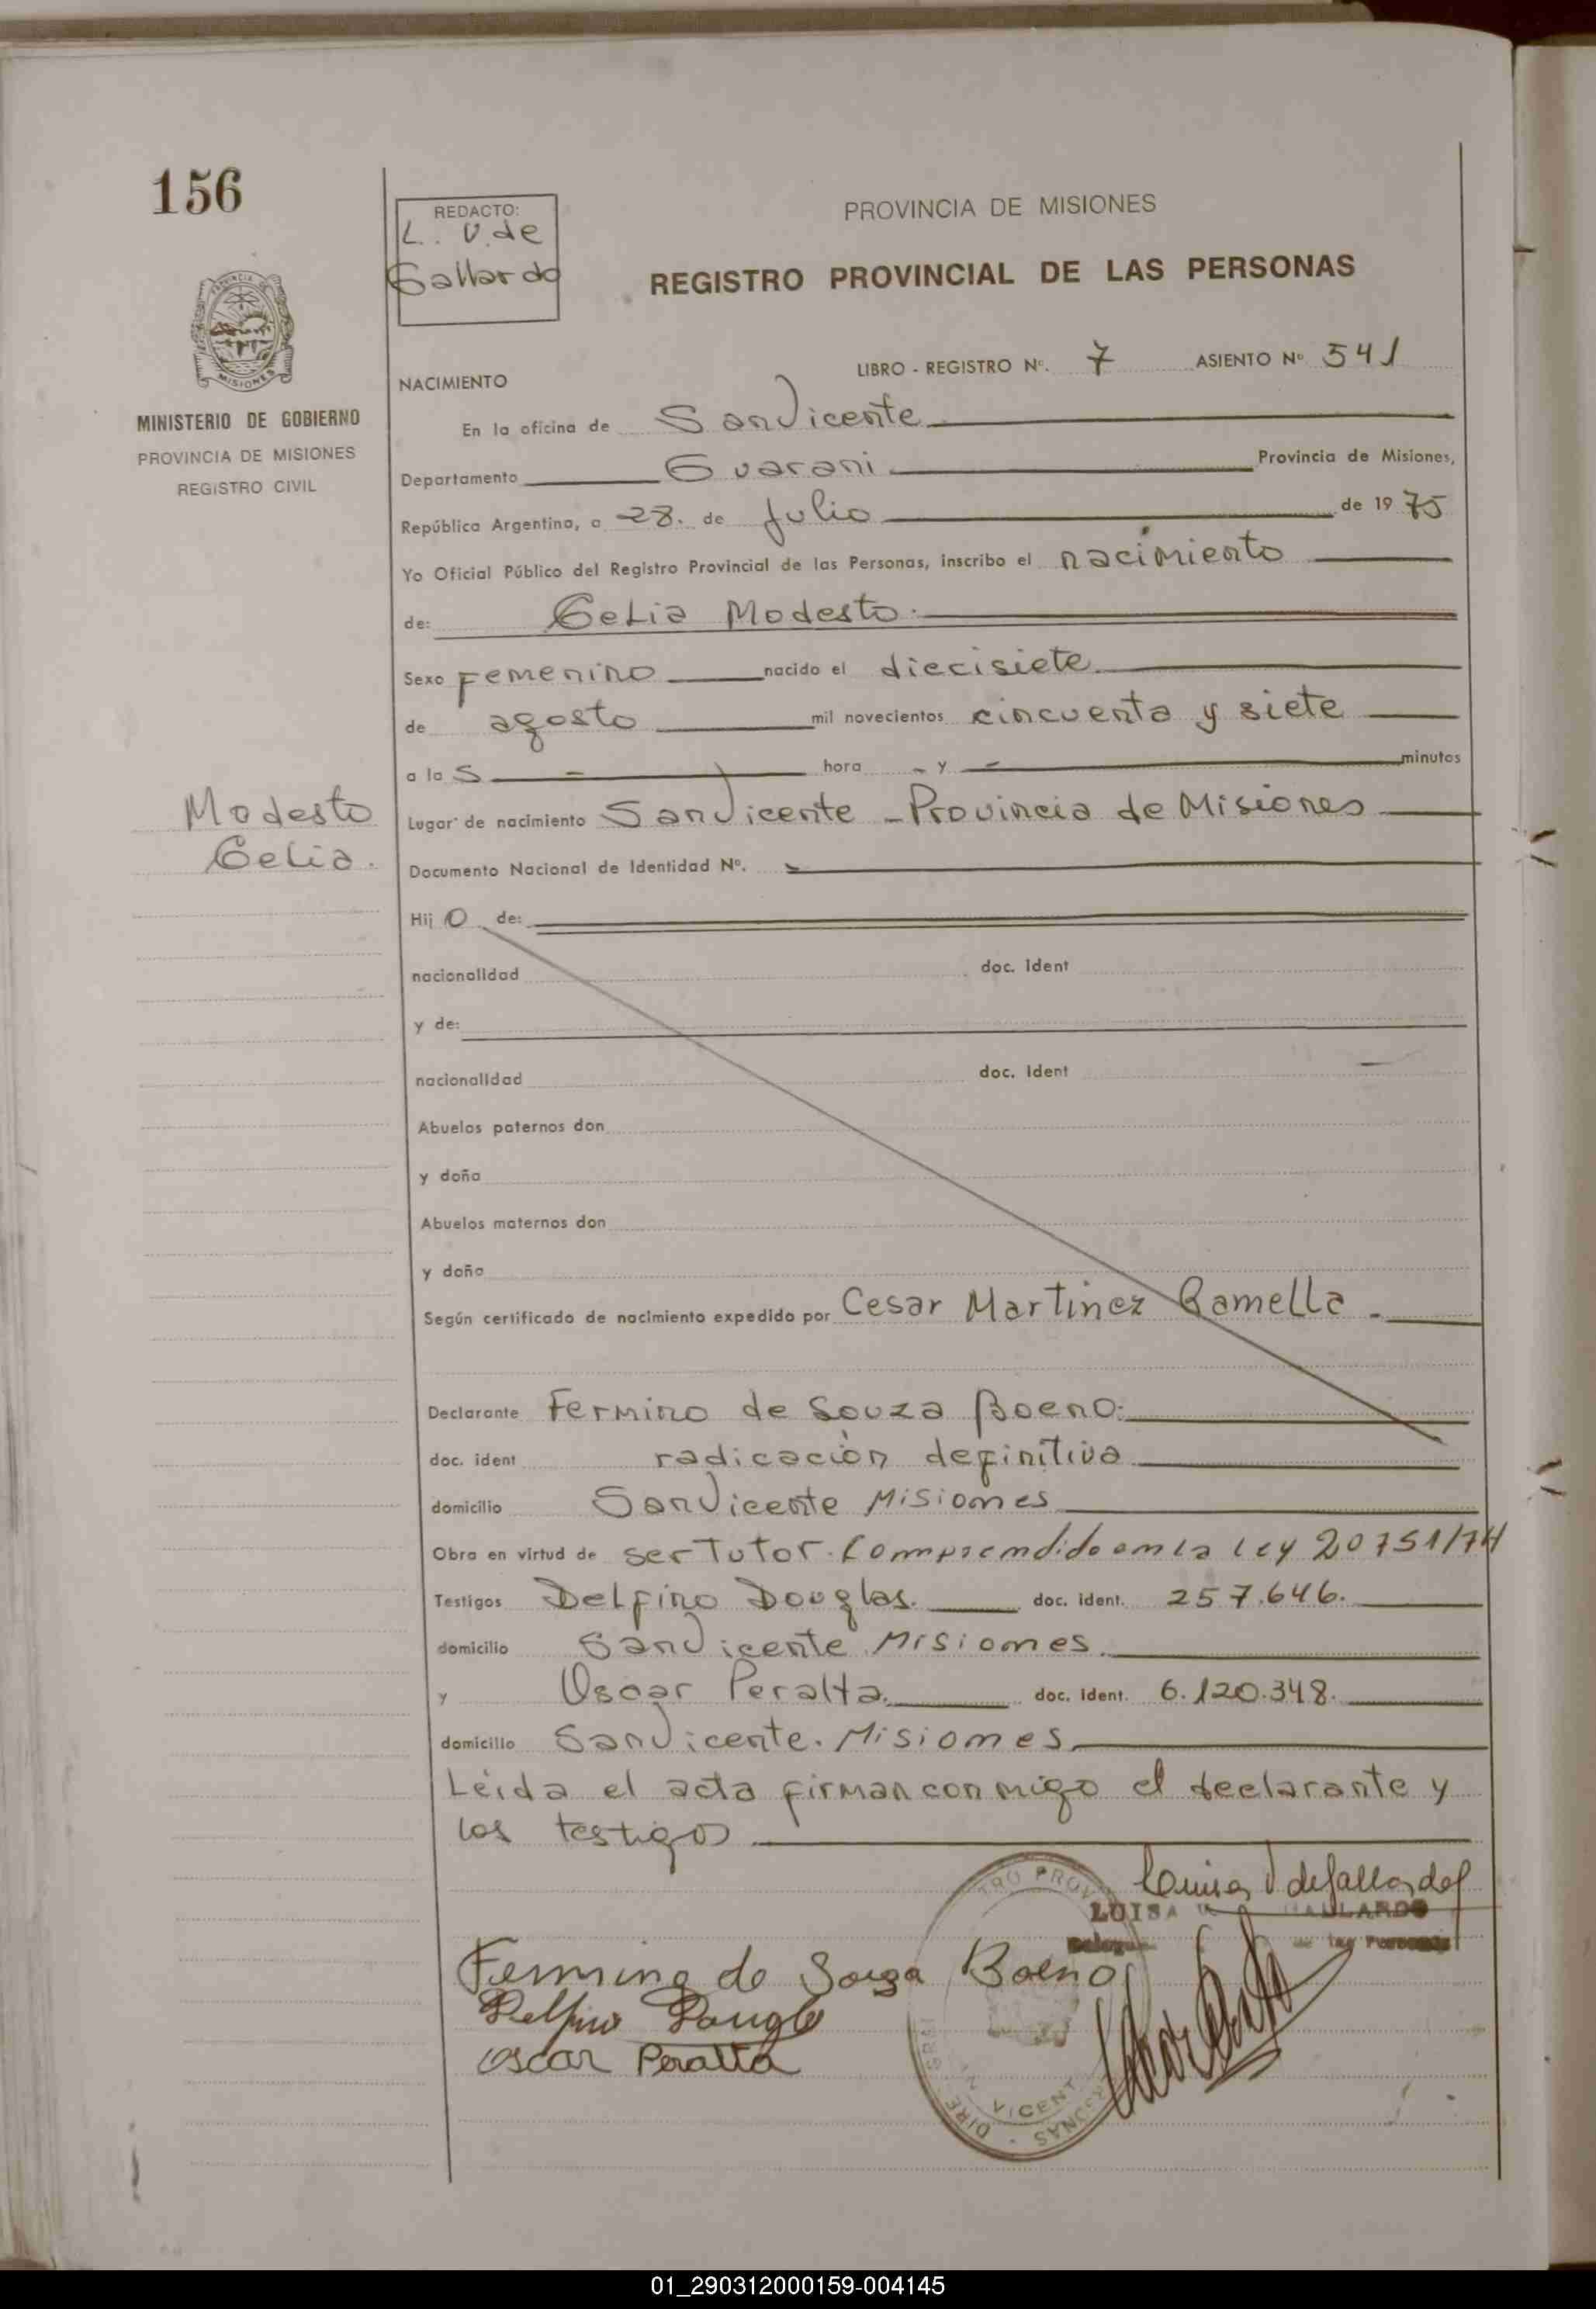 156
REDACTO:
L. V. de
Gallardo
PROVINCIA DE MISIONES
REGISTRO PROVINCIAL DE LAS PERSONAS
MISIONES
MINISTERIO DE GOBIERNO
PROVINCIA DE MISIONES
REGISTRO CIVIL
LIBRO - REGISTRO Nº. 7 ASIENTO Nº 541
NACIMIENTO
En la oficina de San Vicente
Departamento Guarani Provincia de Misiones,
República Argentina, a 28. de Julio de 1975
Yo Oficial Público del Registro Provincial de las Personas, inscribo el nacimiento
de: Celia Modesto.
Sexo Femenino nacido el diecisiete
de agosto mil novecientos cincuenta y siete
a la s - hora - y - minutos
Modesto
Celia.
Lugar de nacimiento San Vicente - Provincia de Misiones
Documento Nacional de Identidad Nº. -
Hij o de:
nacionalidad doc. Ident
y de:
nacionalidad doc. Ident
Abuelos paternos don
y doña
Abuelos maternos don
y doña
Según certificado de nacimiento expedido por Cesar Martinez Gamella -
Declarante Fermino de Souza Boeno.
doc. ident radicación definitiva
domicilio San Vicente Misiones
Obra en virtud de ser Tutor. Comprendido en la Ley 20751/74
Testigos Delfino Douglas. doc. ident. 257.646.
domicilio San Vicente Misiones.
y Oscar Peralta. doc. ident. 6.120.348.
domicilio San Vicente. Misiones
Leída el acta firman conmigo el declarante y
los testigos
Luisa V de Gallardo
LUISA GALLARDO
de las Personas
Fermino de Souza Boeno
Delfino Dougla
Oscar Peralta
TRO PROV
VICENT
DIRE
RSONAS
01_290312000159-004145